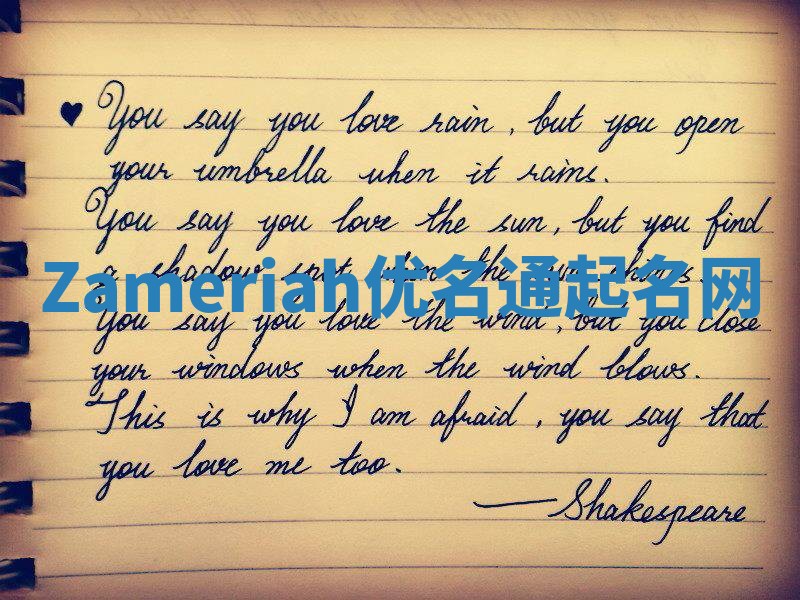 ♥ You say you love rain, but you open
your umbrella when it rains.
You say you love the sun, but you find
a shadow spot when the sun shines.
Zameriah优名通起名网
You say you love the wind, but you close
your windows when the wind blows.
This is why I am afraid, you say that
you love me too.
— Shakespeare